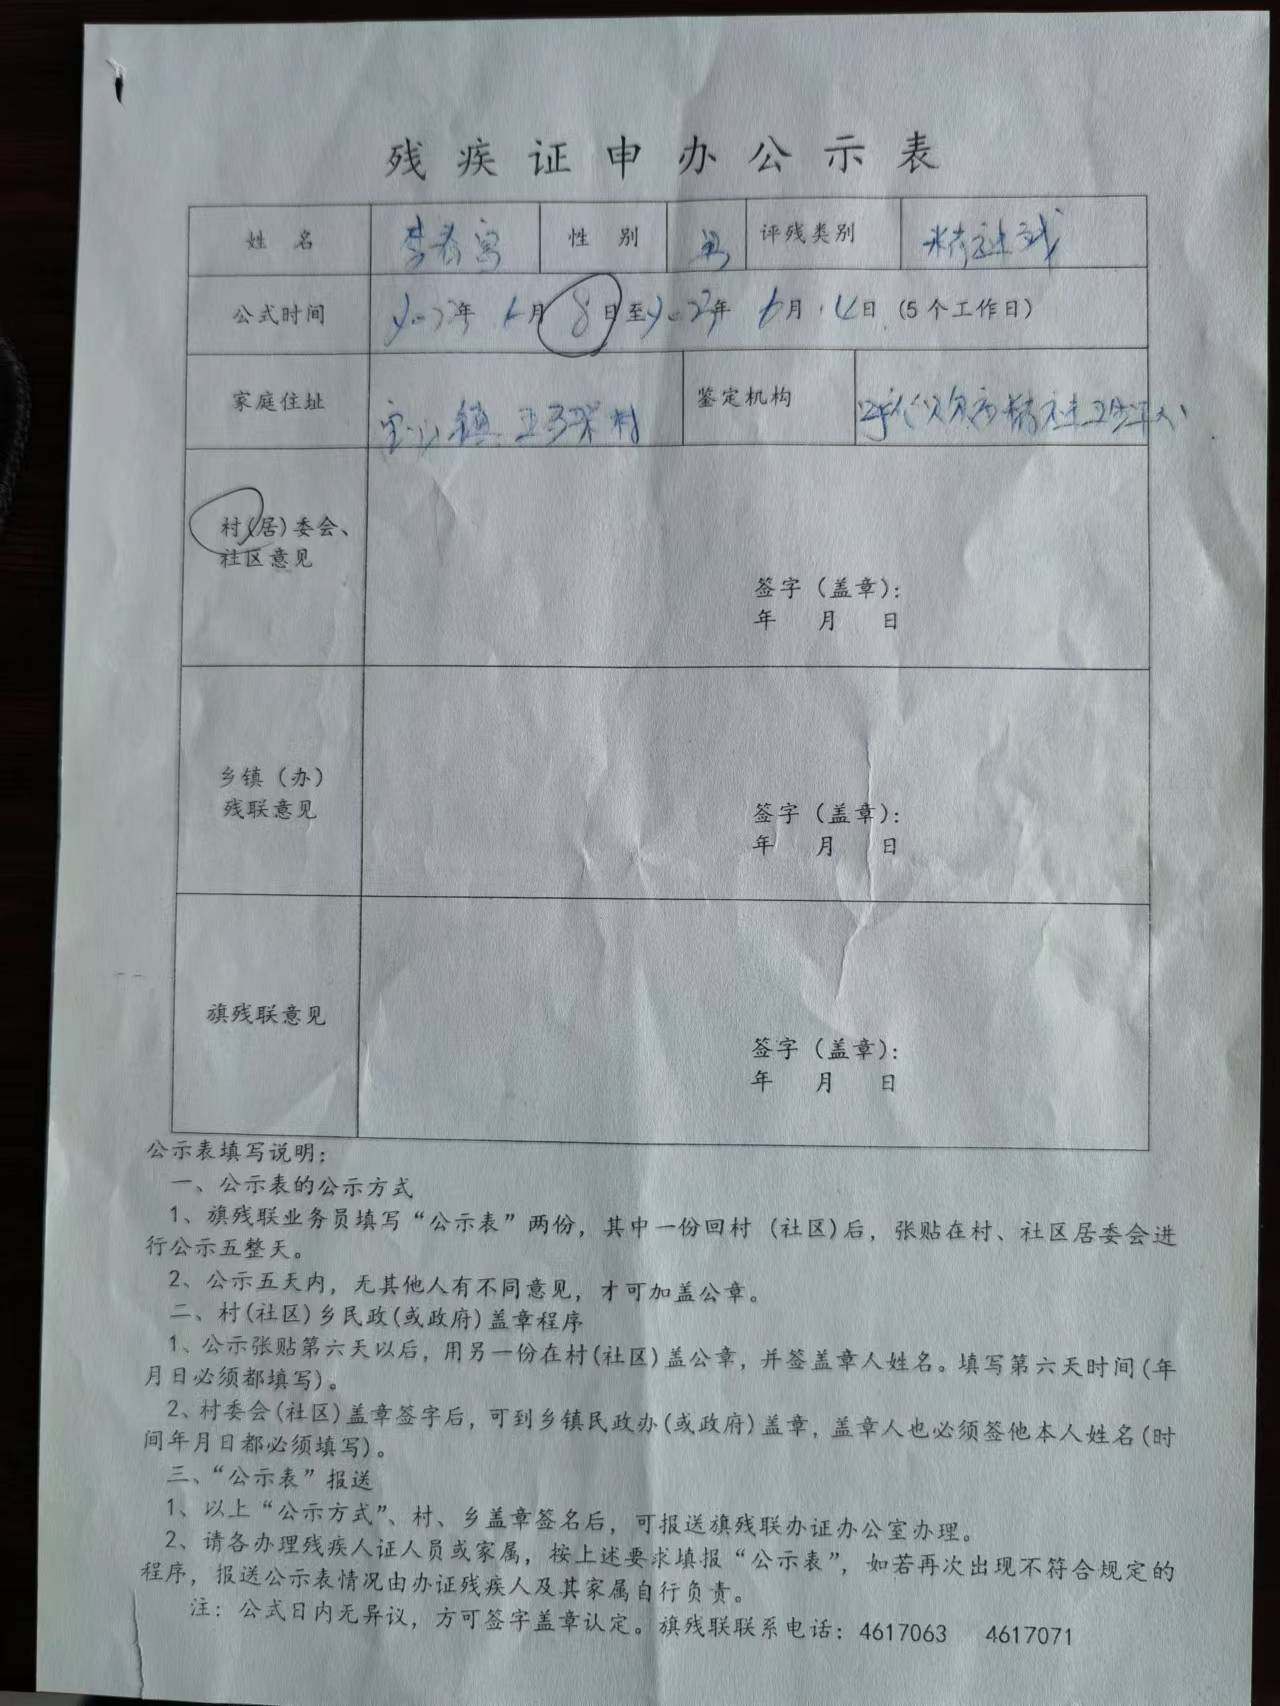 残疾证申办公示表
姓 名 李 性 别 男 评残类别 精神
公式时间 年 6月 8日至 年 6月 14日 (5个工作日)
家庭住址 镇 村 鉴定机构 精神卫生
村(居)委会、
社区意见
签字(盖章):
年 月 日
乡镇(办)
残联意见
签字(盖章):
年 月 日
旗残联意见
签字(盖章):
年 月 日
公示表填写说明:
一、公示表的公示方式
1、旗残联业务员填写“公示表”两份，其中一份回村 (社区)后，张贴在村、社区居委会进
行公示五整天。
2、公示五天内，无其他人有不同意见，才可加盖公章。
二、村(社区)乡民政(或政府)盖章程序
1、公示张贴第六天以后，用另一份在村(社区)盖公章，并签盖章人姓名。填写第六天时间(年
月日必须都填写)。
2、村委会(社区)盖章签字后，可到乡镇民政办(或政府)盖章，盖章人也必须签他本人姓名(时
间年月日都必须填写)。
三、“公示表”报送
1、以上“公示方式”、村、乡盖章签名后，可报送旗残联办证办公室办理。
2、请各办理残疾人证人员或家属，按上述要求填报“公示表”，如若再次出现不符合规定的
程序，报送公示表情况由办证残疾人及其家属自行负责。
注: 公式日内无异议，方可签字盖章认定。旗残联联系电话: 4617063 4617071